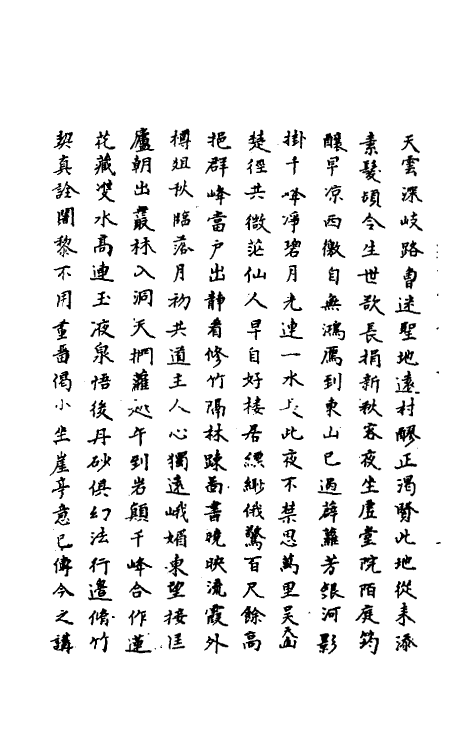 天雲深岐路曹迷聖地遠村醪正渴賢此地從来添
素髮頃令生世欲長捐新秋客夜坐虚堂院陌庭筠
釀早凉西徼自無鴻雁到東山已過薜蘿芳銀河影
掛千峰凈碧月光連一水長此夜不禁思萬里吴山
楚徑共微茫仙人早自好樓居縹緲俄驚百尺餘高
挹群峰當户出静看修竹隔林疎茵書晚映流霞外
樽俎秋臨落月初共道主人心獨遠峨媚東望接匡
廬朝出叢林入洞天捫蘿 午到岩顛千峰合作蓮
花藏雙水高連玉液泉悟後丹砂俱幻法行邊脩竹
契真詮闍黎不用重番偈小坐崖亭意已傳今之講